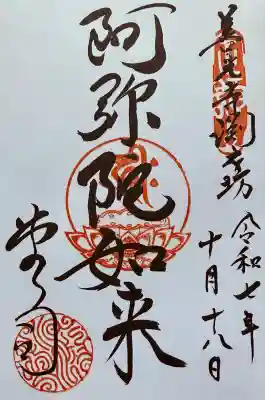 善光寺渕之坊
令和七年
十月十八日
阿弥陀如来